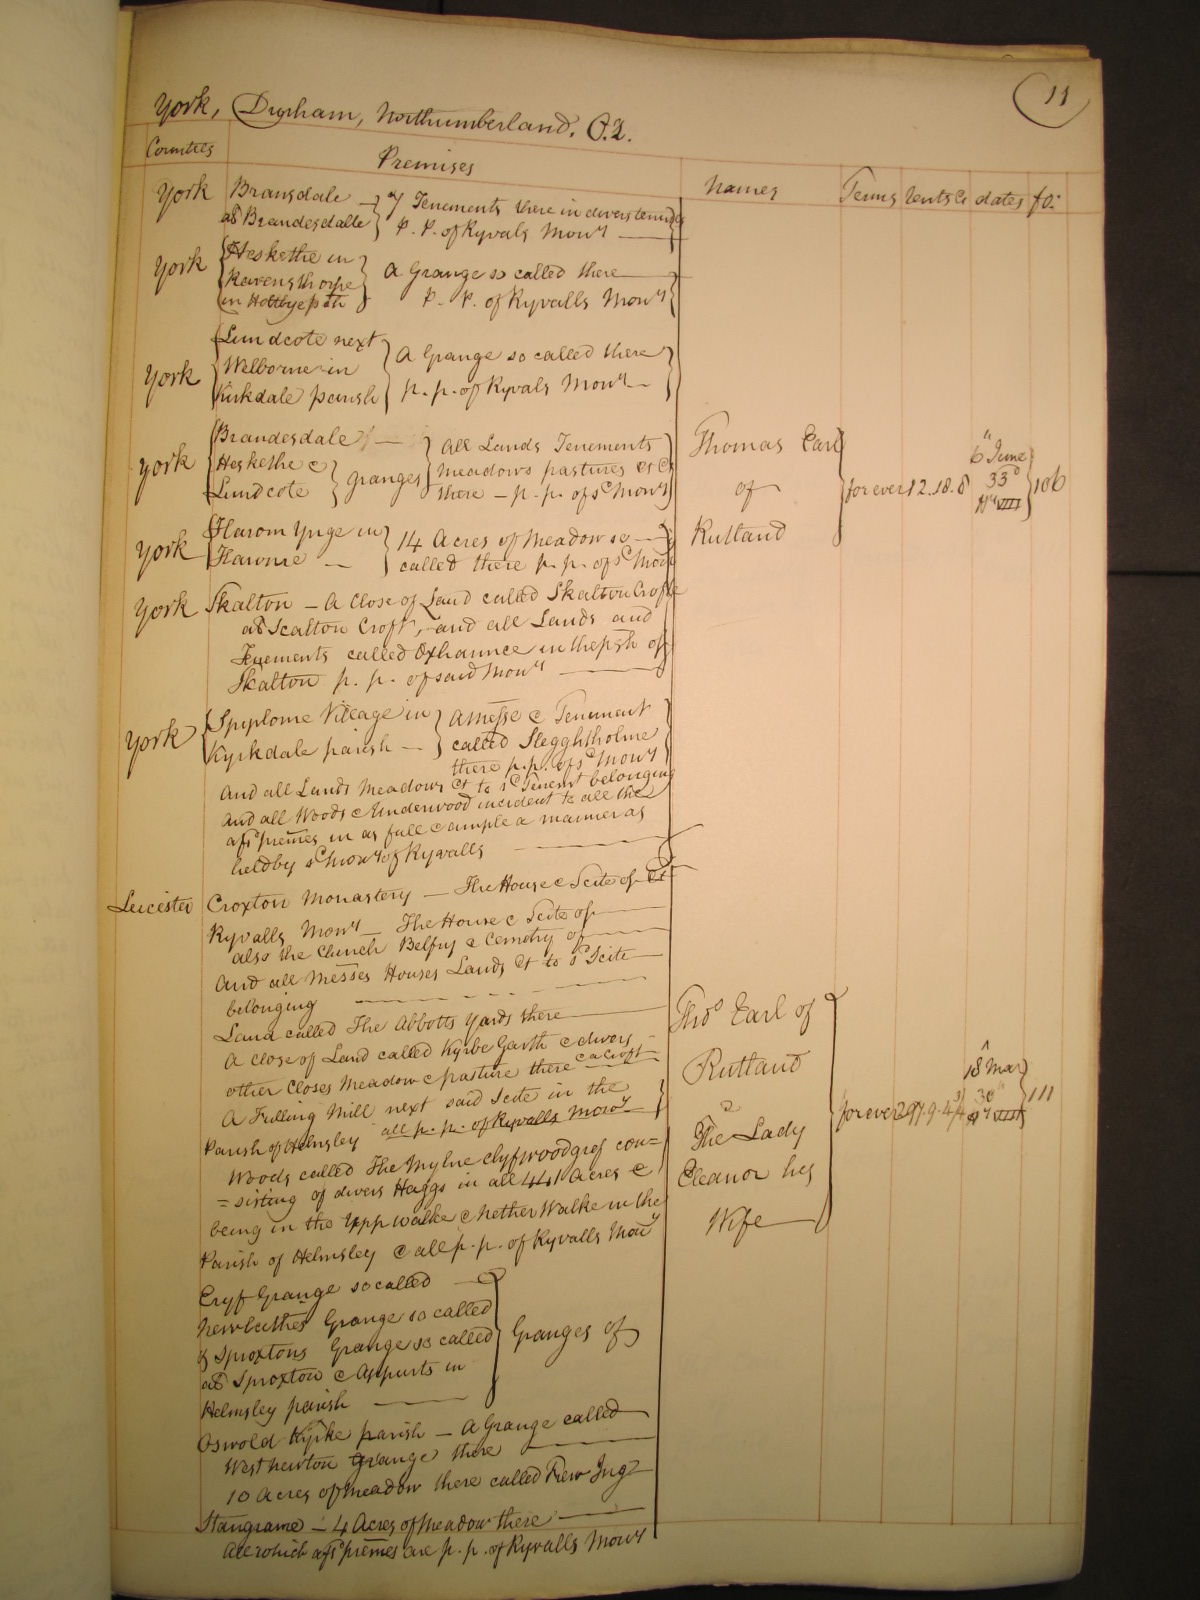 11
York, Durham, Northumberland. O.2.
Counties Premises Names Terms rents &c dates fo:
York Bransdale — 7 Tenements there in divers tenures
als Brandesdalle p. p. of Ryvals Mony
York Heskethe in
Ravensthorpe A Grange so called there
in p. p. of Ryvalls Mony
Lundcote next
York Welborne in A Grange so called there
Kirkdale parish p. p. of Ryvals Mony
York Brandesdale — All Lands Tenements
Heskethe & granges meadows pastures &c
Lundcote there — p. p. of sd Mony
Thomas Earl
of
Rutland
for ever 12.18.8
6 June
33d
Hy VIII
106
York Harom Ynge in 14 Acres of meadow so
Harome — called there p. p. of sd Mony
York Skalton — A Close of Land called Skalton Crofte
als Scalton Croft, and all Lands and
Tenements called Oxhaunce in the psh of
Skalton p. p. of said Mony
York Spiplome Village in A messe & Tenement
Kyrkdale parish — called Slegghtholme
there p. p. of sd Mony
And all Lands Meadows &c to sd Tenemt belonging
and all Woods & Underwood incident to all the
afsd premes in as full & ample a manner as
held by sd Mony of Ryvalls
Leicester Croxton Monastery — The House & Scite of &c
Ryvalls Mony — The House & Scite of
also the Church Belfry & Cemetry of
And all Messes Houses Lands &c to sd Scite
belonging
Land called The Abbotts Yards there
A close of Land called Kyrbe Garth & divers
other Closes Meadow & pasture there & a Croft
A Fulling Mill next said Scite in the
Parish of Helmsley all p. p. of Ryvalls Mony
Woods called The Mylne con=
=sisting of divers Haggs in all 441 Acres &
being in the Upp walke & Nether Walke in the
Parish of Helmsley & all p. p. of Ryvalls Mony
Thos Earl of
Rutland
&
The Lady
Eleanor his
Wife
for ever 297.9.4¾
18 Mar
30
Hy VIII
111
Gryf Grange so called
Newlathes Grange so called
& Sproxtons Grange so called Granges of
als Sproxton & Appurts in
Helmsley parish
Oswold Kyrke parish — A Grange called
West newton Grange there
10 Acres of meadow there called Frew Ing
Stangrame — 4 Acres of meadow there
All which afsd premes are p. p. of Ryvalls Mony